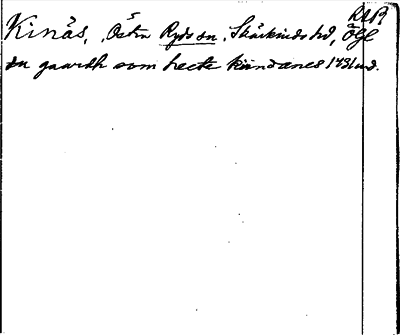 RAP
Kinås, Östra Ryds sn, Skärkinds hd, Ögl
en gaardh som heete kiindanes 1431